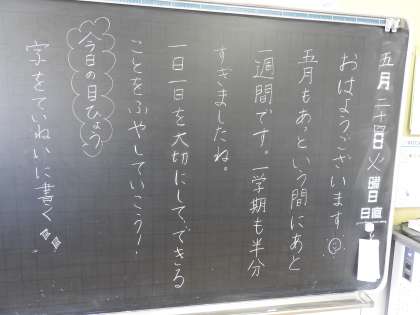 五月二十日火曜日
日直
おはようございます。
五月もあっという間にあと
一週間です。一学期も半分
すぎましたね。
一日一日を大切にして、できる
ことをふやしていこう！
今日の目ひょう
字をていねいに書く